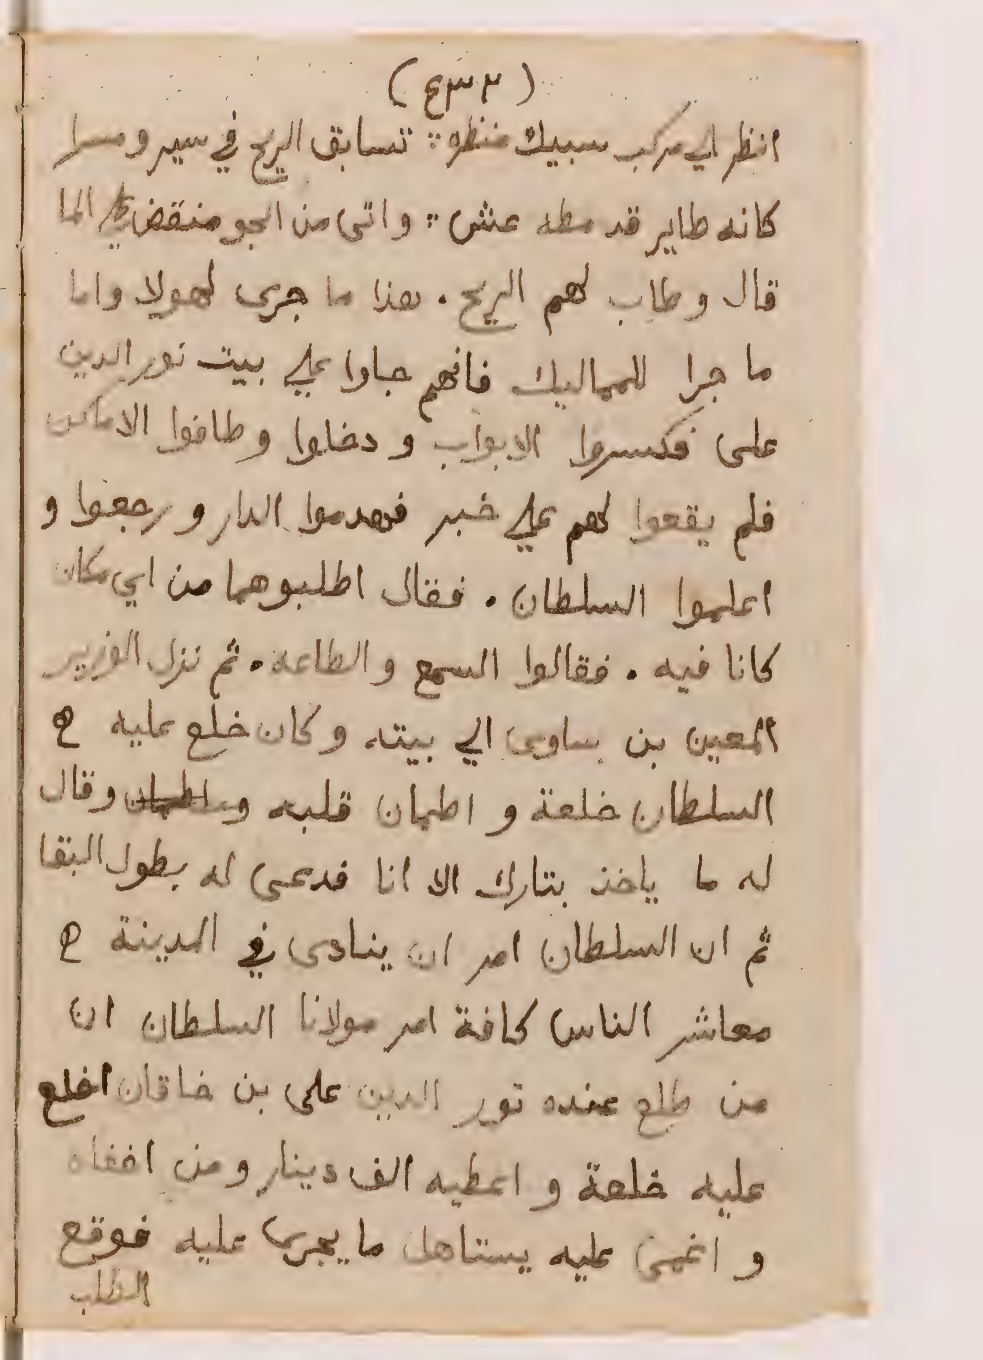 (٤٣٢)
انظر الي مركب سبيك منظره : تسابق الريح في سير ومسرا
كانه طاير قد مطه عنش : واتى من الجو منقض على الما
قال وطاب لهم الريح . هذا ما جرى لهولا واما
ما جرا للمماليك فانهم جاوا على بيت نور الدين
على فكسروا الابواب و دخلوا وطافوا الاماكن
فلم يقعوا لهم على خبر فهدموا الدار ورجعوا و
اعلموا السلطان . فقال اطلبوهما من اي مكان
كانا فيه . فقالوا السمع والطاعه . ثم نزل الوزير
المعين بن ساوى الي بيته وكان خلع عليه
السلطان خلعة و اطمان قلبه وقال
له ما ياخذ بتارك الا انا فدعى له بطول البقا
ثم ان السلطان امر ان ينادى في المدينة
معاشر الناس كافة امر مولانا السلطان ان
من طلع عنده نور الدين على بن خاقان اخلع
عليه خلعة و اعطيه الف دينار ومن اخفاه
و اغمى عليه يستاهل ما يجرى عليه فوقع
الطلب